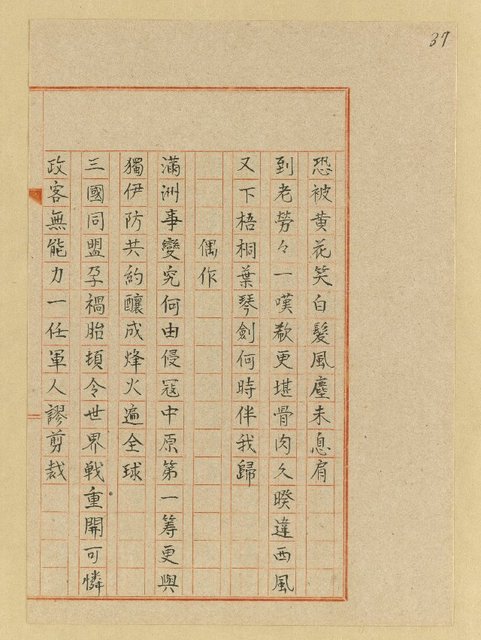 39
恐被黄花笑白髮風塵未息肩
到老勞々一嘆欷更堪骨肉久暌違西風
又下梧桐葉琴劍何時伴我歸
偶作
滿洲事變究何由侵冦中原第一筹更與
獨伊防共約釀成烽火遍全球
三國同盟孕禍胎頓令世界戦重開可憐
政客無能力一任軍人謬剪裁